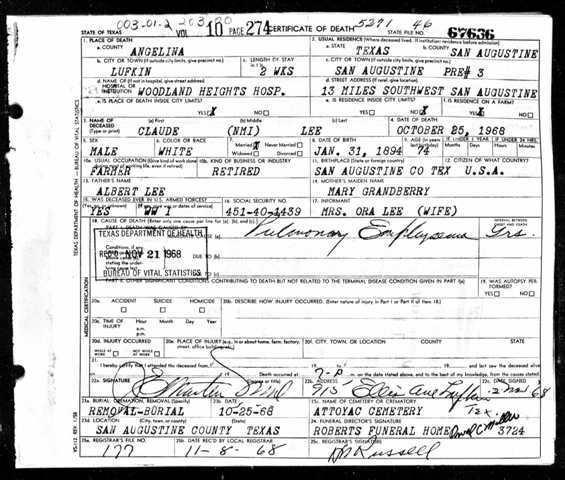 003.01-2 203.80
5291 46
STATE OF TEXAS VOL 10 PAGE 274 CERTIFICATE OF DEATH STATE FILE NO. 67636
1. PLACE OF DEATH
a. COUNTY ANGELINA
2. USUAL RESIDENCE (Where deceased lived. If institution: residence before admission)
a. STATE TEXAS b. COUNTY SAN AUGUSTINE
b. CITY OR TOWN (If outside city limits, give precinct no.) LUFKIN
c. LENGTH OF STAY in 1b 2 WKS
c. CITY OR TOWN (If outside city limits, give precinct no.) SAN AUGUSTINE PRE# 3
d. NAME OF (If not in hospital, give street address) HOSPITAL OR INSTITUTION WOODLAND HEIGHTS HOSP.
d. STREET ADDRESS (If rural, give location) 13 MILES SOUTHWEST SAN AUGUSTINE
e. IS PLACE OF DEATH INSIDE CITY LIMITS? YES X NO
e. IS RESIDENCE INSIDE CITY LIMITS? YES NO X
f. IS RESIDENCE ON A FARM? YES X NO
3. NAME OF DECEASED (Type or print) (a) First CLAUDE (b) Middle (NMI) (c) Last LEE
4. DATE OF DEATH OCTOBER 25, 1968
5. SEX MALE
6. COLOR OR RACE WHITE
7. Married X Never Married Widowed Divorced
8. DATE OF BIRTH JAN. 31, 1894
9. AGE 74 IF UNDER 1 YEAR Months Days IF UNDER 24 HRS. Hours Minutes
10a. USUAL OCCUPATION (Give kind of work done FARMER
10b. KIND OF BUSINESS OR INDUSTRY RETIRED
11. BIRTHPLACE (State or foreign country) SAN AUGUSTINE CO TEX
12. CITIZEN OF WHAT COUNTRY? U.S.A.
13. FATHER'S NAME ALBERT LEE
14. MOTHER'S MAIDEN NAME MARY GRANDBERRY
15. WAS DECEASED EVER IN U.S. ARMED FORCES? YES WW 1
16. SOCIAL SECURITY NO. 451-40-1439
17. INFORMANT MRS. ORA LEE (WIFE)
18. CAUSE OF DEATH (Enter only one cause per line for (a), (b), and (c).)
INTERVAL BETWEEN ONSET AND DEATH
PART I. DEATH WAS CAUSED BY
TEXAS DEPARTMENT OF HEALTH
REC'D NOV 21 1968
BUREAU OF VITAL STATISTICS
Pulmonary Emphysema Yrs.
DUE TO
DUE TO
OTHER SIGNIFICANT CONDITIONS CONTRIBUTING TO DEATH BUT NOT RELATED TO THE TERMINAL DISEASE CONDITION GIVEN IN PART I(a)
19. WAS AUTOPSY PERFORMED? YES NO
20a. ACCIDENT SUICIDE HOMICIDE
20b. DESCRIBE HOW INJURY OCCURRED. (Enter nature of injury in Part I or Part II of item 18.)
20c. TIME OF INJURY Hour Month Day Year a.m. p.m.
20d. INJURY OCCURRED WHILE AT WORK NOT WHILE AT WORK
20e. PLACE OF INJURY (e.g., in or about home, farm, factory, street, office building, etc.)
20f. CITY, TOWN, OR LOCATION COUNTY STATE
21. I hereby certify that I attended the deceased from 19 to 19 and last saw the deceased alive
on 19 Death occurred at 7-P m. on the date stated above, and to the best of my knowledge, from the causes stated.
22a. SIGNATURE
22b. ADDRESS 915 Ellis Ave Lufkin Tex.
22c. DATE SIGNED
23a. BURIAL, CREMATION, REMOVAL (Specify) REMOVAL-BURIAL
23b. DATE 10-25-68
23c. NAME OF CEMETERY OR CREMATORY ATTOYAC CEMETERY
23d. LOCATION (City, town, or county) (State) SAN AUGUSTINE COUNTY TEXAS
24. FUNERAL DIRECTOR'S SIGNATURE ROBERTS FUNERAL HOME 3724
25a. REGISTRAR'S FILE NO. 177
25b. DATE REC'D BY LOCAL REGISTRAR 11-8-68
25c. REGISTRAR'S SIGNATURE Russell
TEXAS DEPARTMENT OF HEALTH — BUREAU OF VITAL STATISTICS
MEDICAL CERTIFICATION
VS-112 REV. 1/58